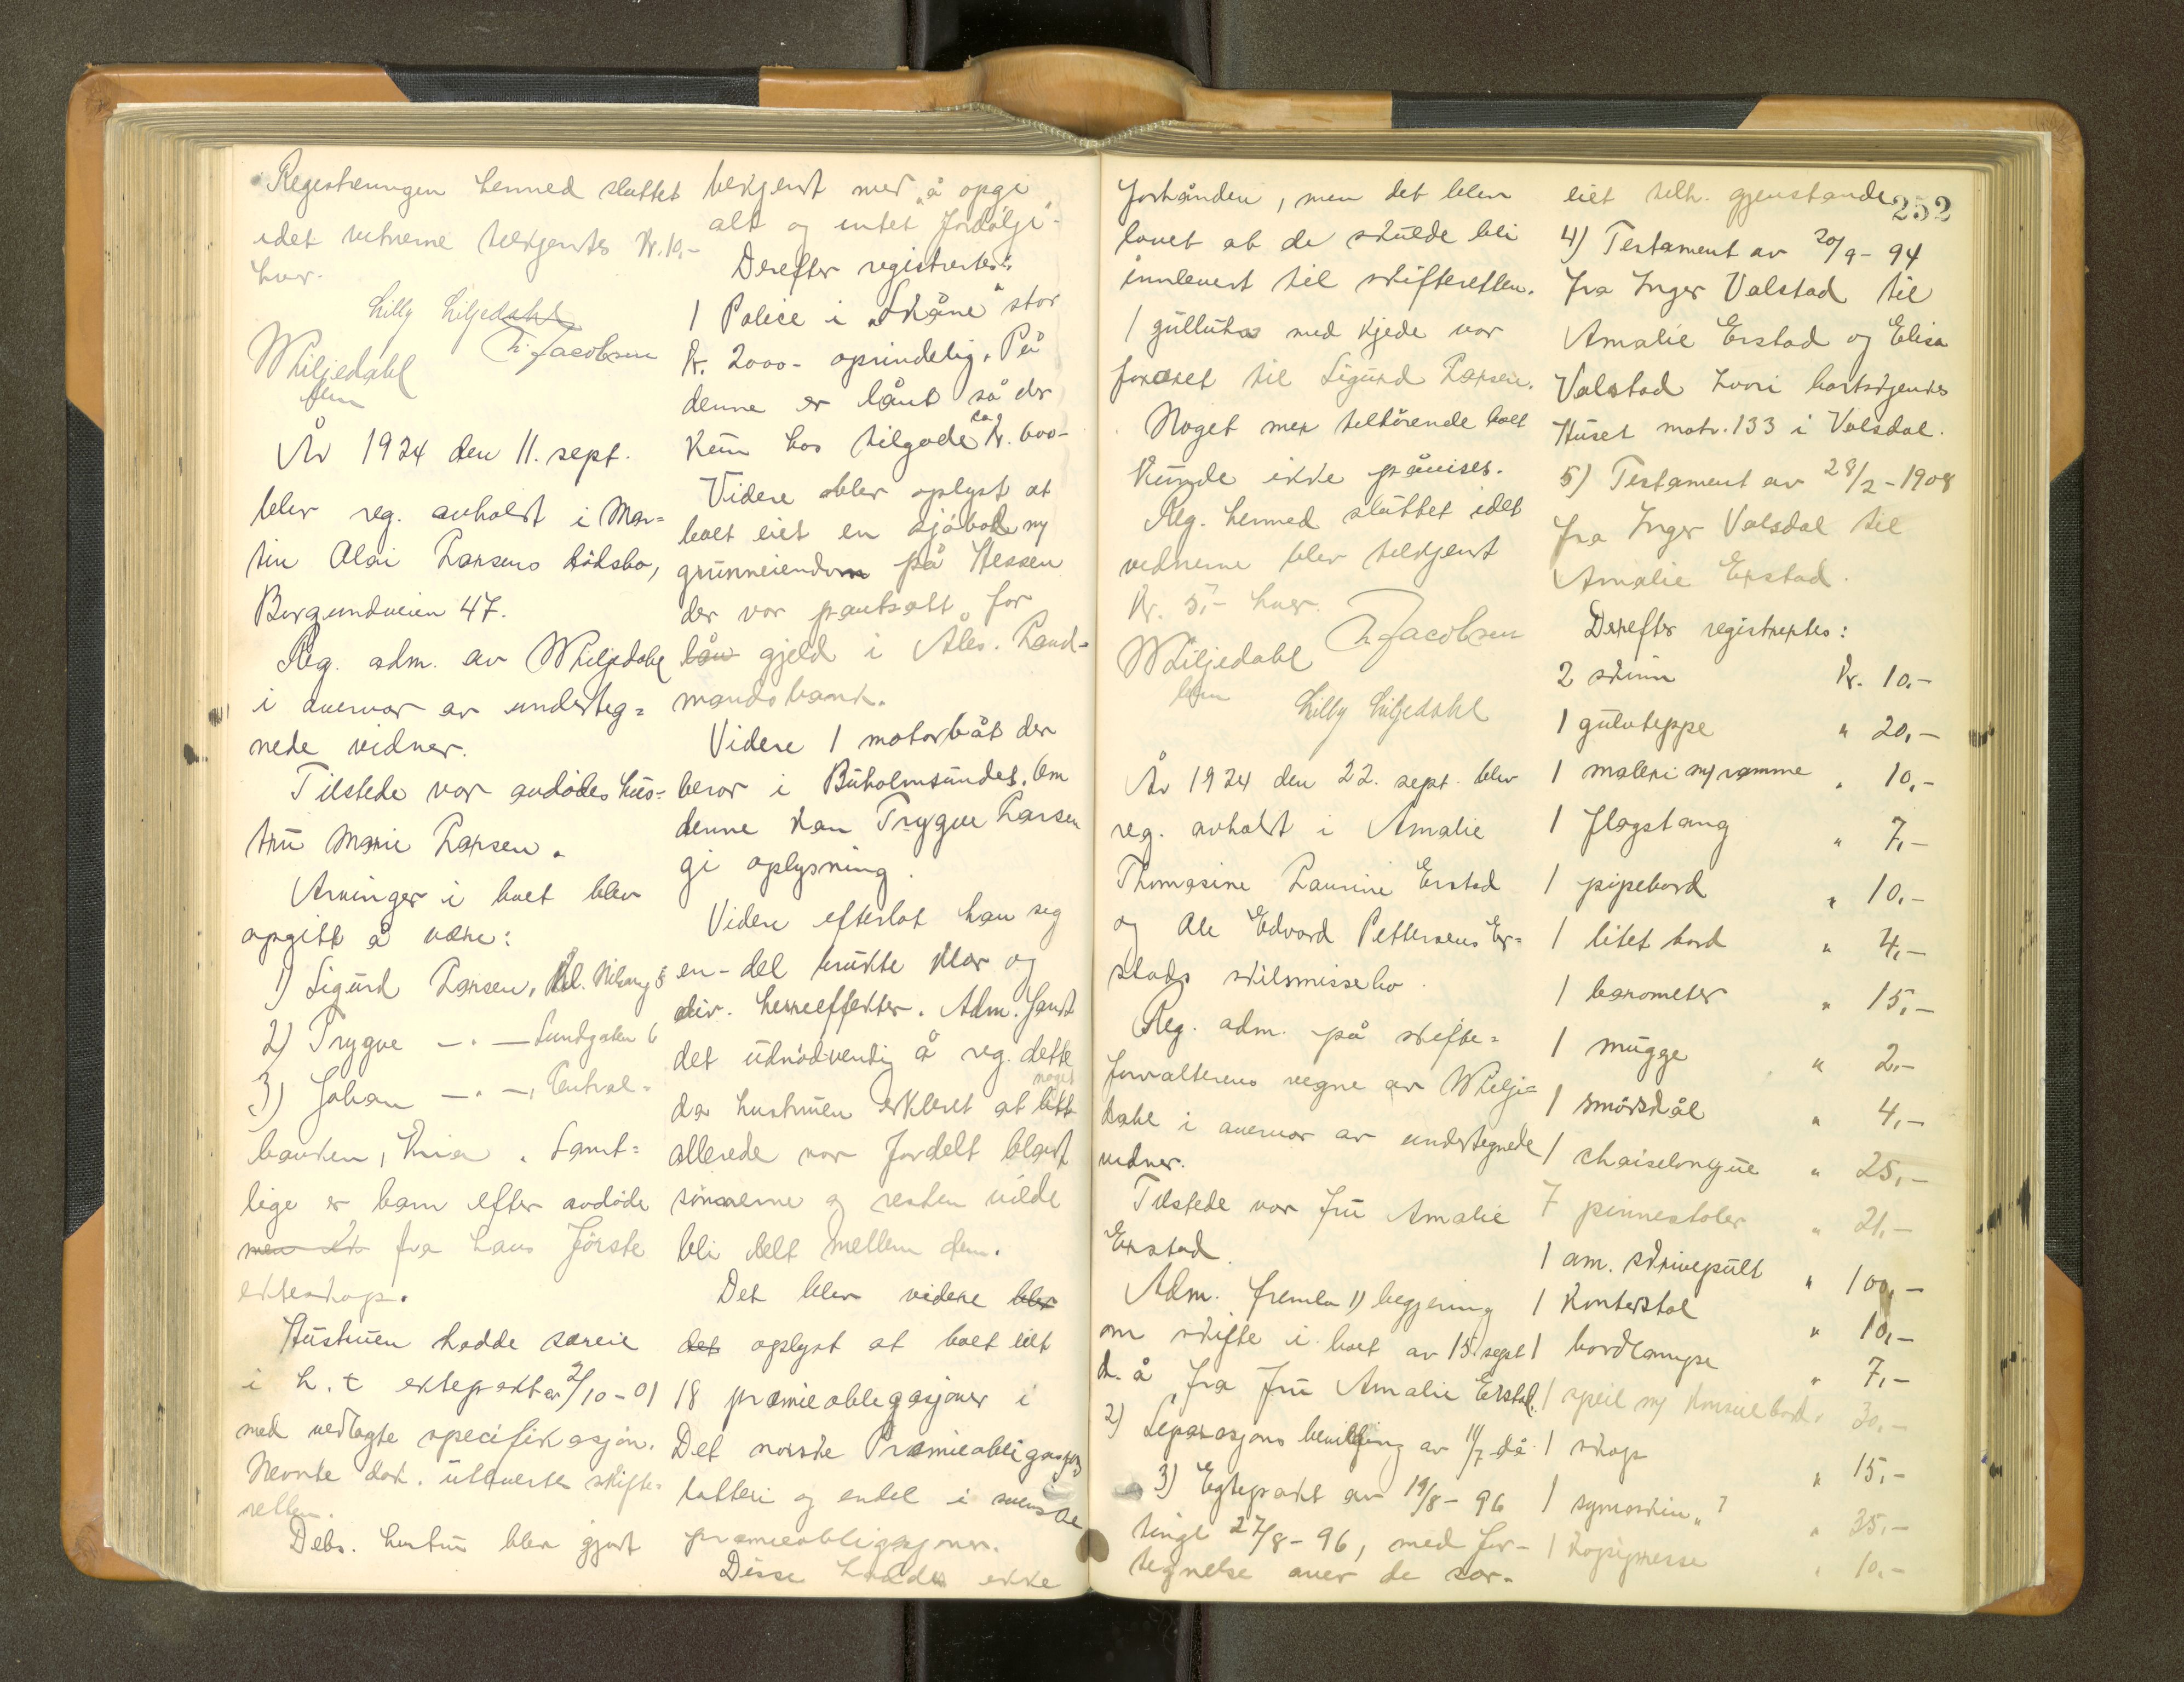 Registreringen hermed sluttet
idet vitnerne tilkjentes Kr. 10,-
hver.
Lilly Liljedahl
WLiljedahl Th. Jacobsen
År 1924 den 11. sept.
blev reg. avholdt i Mar=
tin Olai Larsens dödsbo,
Borgundveien 47.
Reg. adm. av WLiljedahl
i nærvær av underteg=
nede vidner.
Tilstede var avdödes hus=
tru Marie Larsen.
Arvinger i boet blev
opgitt å være:
1) Sigurd Larsen,
2) Trygve —„— Lundgaten 6
3) Johan —„—, Central=
banken, Kria. Samt=
lige er barn efter avdöde
men fra hans förste
ekteskap.
Hustruen hadde særeie
i h. t. ektepakt av 2/10-01
med vedlagte specifikasjon.
Nevnte dok. utleverte skifte=
retten.
Debs. hustru blev gjort
bekjent med å opgi
alt og intet fordölge.
Derefter registrertes:
1 Police i „Skåne" stor
Kr. 2000- oprindelig. På
denne er lånt så der
kun has tilgode ca Kr. 600-
Videre blev oplyst at
boet eiet en sjöbod m/
grunneiendom på Hessen
der var pantsatt for
lån gjeld i Åles. Land=
mandsbank.
Videre 1 motorbåt der
beror i Buholmsundet. Om
denne kan Trygve Larsen
gi oplysning.
Videre efterlot han seg
en-del brukte klær og
div. herreeffekter. Adm. fandt
det unödvendig å reg. dette
da hustruen erkleret at litt noget
allerede var fordelt blandt
sönnerne og resten vilde
bli delt mellem dem.
Det blev videre blev
det oplyst at boet eiet
18 præmieobligasjoner i
Det norske Præmieobligasjons
lotteri og endel i svenske
præmieobligasjoner.
Disse hadde ikke
252
forhånden, men det blev
lovet at de skulde bli
innlevert til skifteretten.
1 gullur med kjede var
foræret til Sigurd Larsen.
Noget mer tilhörende boet
kunde ikke påvises.
Reg. hermed sluttet idet
vidnerne blev tilkjent
Kr. 5,- hver.
WLiljedahl Th. Jacobsen
Lilly Liljedahl
År 1924 den 22. sept. blev
reg. avholdt i Amalie
Thomasine Laurine Erstad
og Ole Edvard Pettersens Er=
stads skilsmissebo.
Reg. adm. på skifte=
forvalterens vegne av WLilje=
dahl i nærvær av undertegnede
vidner.
Tilstede var fru Amalie
Erstad.
Adm. fremla 1) begjering
om skifte i boet av 15. sept
d. å fra fru Amalie Erstad.
2) Separasjons bevilling av 11/7 då.
3) Egtepakt av 19/8-96
tingl 27/8-96, med for-
tegnelse over de sær-
eiet tilh. gjenstande
4) Testament av 20/9-94
fra Inger Valstad til
Amalie Erstad og Elisa
Valstad hvori bortskjentes
Huset matr. 133 i Volsdal.
5) Testament av 28/2-1908
fra Inger Volsdal til
Amalie Erstad.
Derefter registrertes:
2 skinn Kr. 10,-
1 gulvteppe " 20,-
1 maleri m/ ramme " 10,-
1 flagstang " 7,-
1 pipebord " 10,-
1 litet bord " 4,-
1 barometer " 15,-
1 mugge " 2,-
1 smörskål " 4,-
1 chaiselongue " 25,-
7 pinnestoler " 21,-
1 am. skrivepult " 100,-
1 kontorstol " 10,-
1 bordlampe " 7,-
1 speil m/ konsolbord " 30,-
1 skap " 15,-
1 symaskin " 35,-
1 kopipresse " 10,-